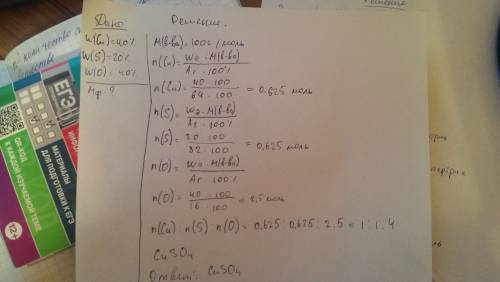 Дано
W(Cu)=40%
W(S)=20%
W(O)=40%
Мф-?
Решение.
M(в-ва)=100г/моль
n(Cu)= Wэ · M(в-ва) / Ar · 100%
n(Cu)= 40 · 100 / 64 · 100 = 0,625 моль
n(S)= Wэ · M(в-ва) / Ar · 100%
n(S)= 20 · 100 / 32 · 100 = 0,625 моль
n(O)= Wэ · M(в-ва) / Ar · 100%
n(O)= 40 · 100 / 16 · 100 = 2,5 моль
n(Cu) : n(S) : n(O) = 0,625 : 0,625 : 2,5 = 1 : 1 : 4
CuSO4
Ответ: CuSO4
количество
ЕГЭ
МАТЕРИАЛЫ
ДЛЯ ПОДГОТОВКИ К ЕГЭ
QR-КОД
К КАЖДОЙ ИЗУЧАЕМОЙ ТЕМЕ
12+